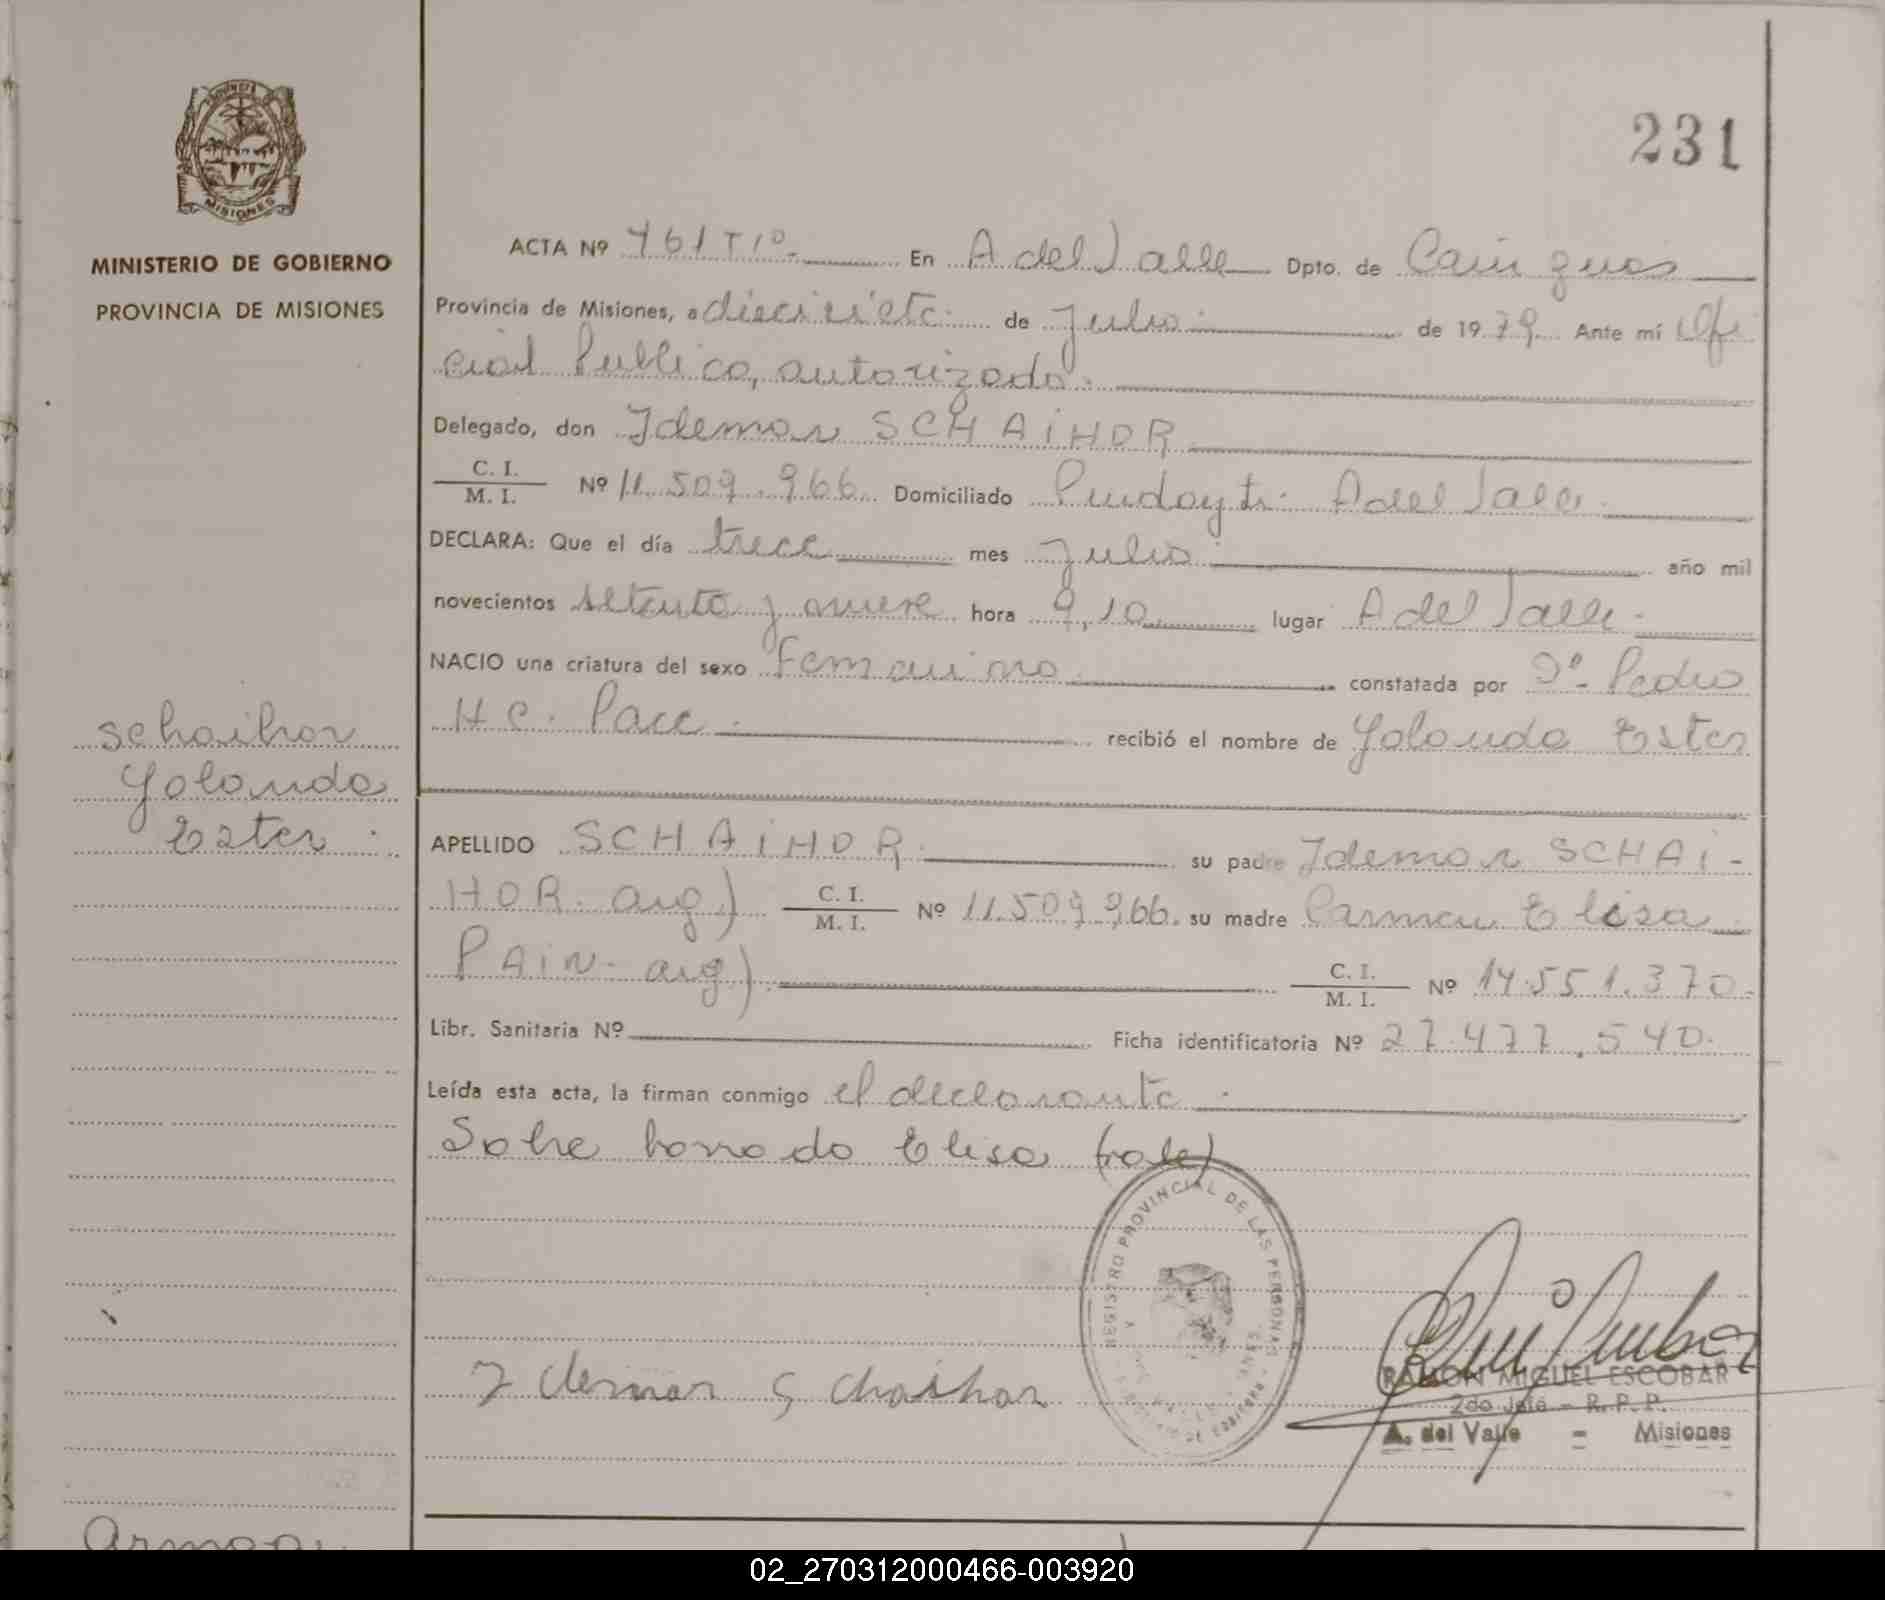 231
PROVINCIA
MISIONES
MINISTERIO DE GOBIERNO
PROVINCIA DE MISIONES
ACTA Nº 761 Tº En A del Valle Dpto. de Cainguas
Provincia de Misiones, a diecisiete de Julio de 1979 Ante mí Ofi
cial Publico, autorizado.
Delegado, don Idemar SCHAiHOR
C. I.
M. I. Nº 11.509.966 Domiciliado A del Valle.
DECLARA: Que el día trece mes Julio año mil
novecientos setenta y nueve hora 9,10 lugar A del Valle.
NACIO una criatura del sexo Femenino constatada por Dº. Pedro
H C. Pace. recibió el nombre de Yolanda Ester
Schaihor
Yolanda
Ester.
APELLIDO SCHAiHOR. su padre Idemar SCHAi-
HOR. arg) C. I.
M. I. Nº 11.509.966. su madre Carmen Elisa
PAiN- arg) C. I.
M. I. Nº 14.551.370.
Libr. Sanitaria Nº Ficha identificatoria Nº 27.477.540.
Leída esta acta, la firman conmigo el declarante.
Sobre borrado Elisa (vale)
REGISTRO PROVINCIAL DE LAS PERSONAS
Idemar Schaihor
RAMON MIGUEL ESCOBAR
2do Jefe - R. P. P.
A. del Valle - Misiones
02_270312000466-003920